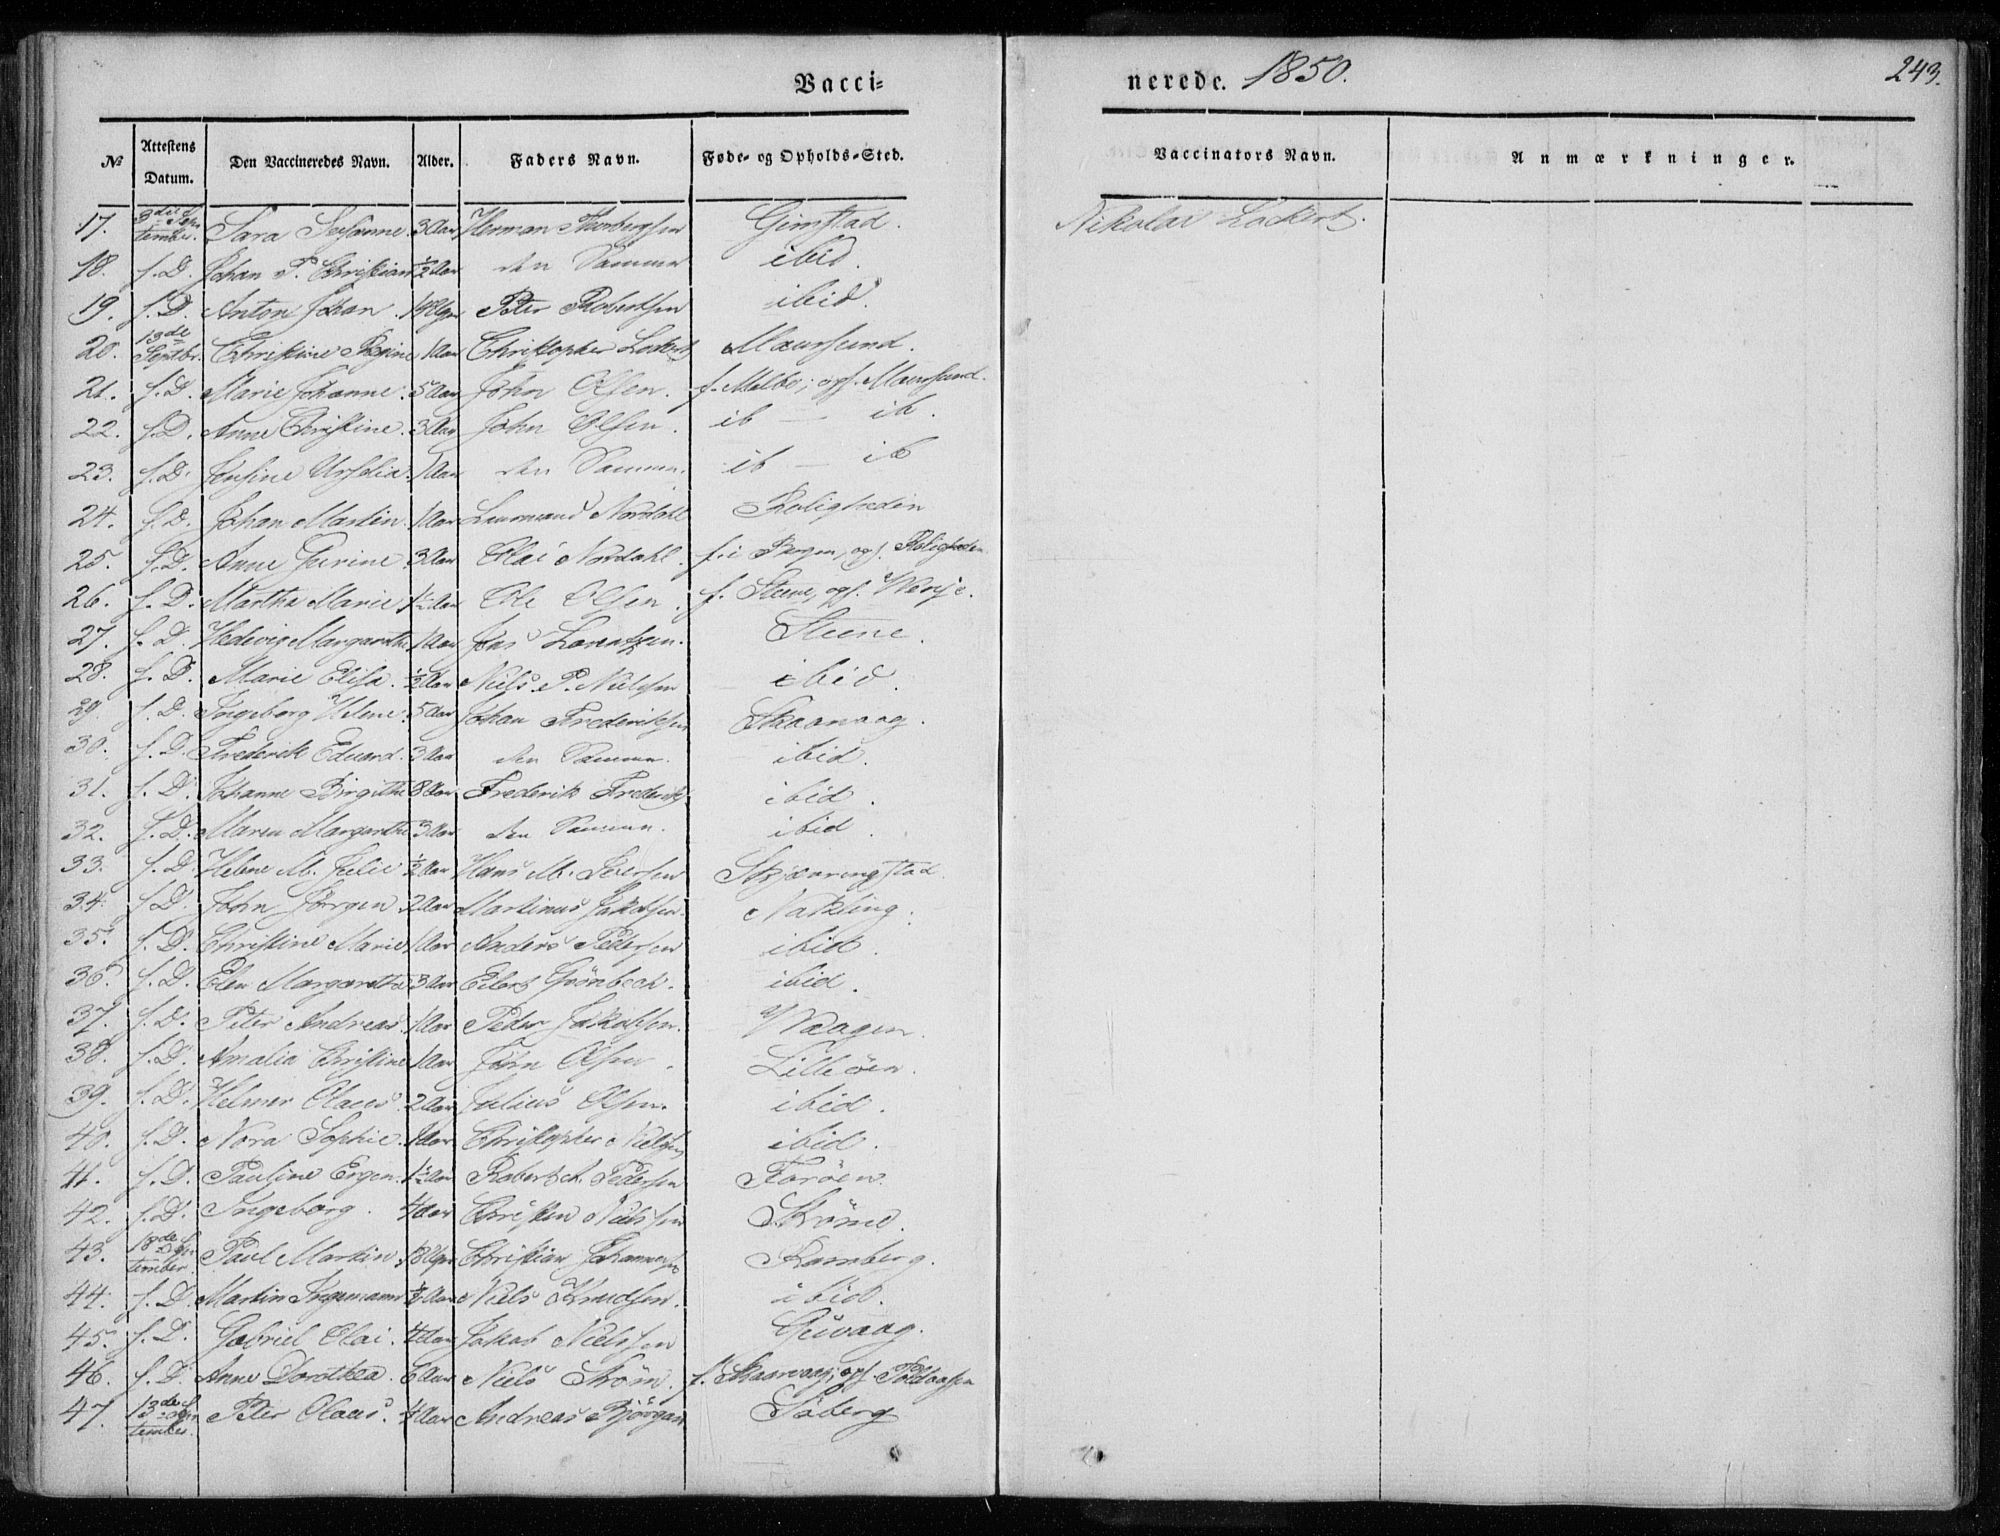 Vacci-
nerede. 1850.
243.
№ Attestens Datum. Den Vaccineredes Navn. Alder. Faders Navn. Føde- og Opholds-Sted. Vaccinators Navn. Anmærkninger.
17. 3die September. Sara Susanne. 3 Aar Herman Thorbergsen Gimstad. Nikolai Lockert.
18. s. D. Johan P. Christian ½ Aar den Samme ibid.
19. s. D. Anton Johan. Peter Robertsen ibid.
20. 13de Septbr. Christine Regine 1 Aar Christopher Lockert Maursund.
21. s. D. Marie Johanne. 5 Aar John Olsen. f. Melbo; opf. Maursund.
22. s. D. Anne Christine. 3 Aar John Olsen. ib — ib.
23. s. D. Jensine 1 Aar den Samme. ib — ib
24. s. D. Johan Martin. 1 Aar Nordahl Roligheden
25. s. D. Anne Gurine. 3 Aar Olai Nordahl. f. i Bergen, opf. Roligheden
26. s. D. Martha Marie 1½ Aar Ole Olsen. f. Steene, opf.
27. s. D. Hedevig Margarethe 1 Aar Jens Lorentzen. Steene.
28. s. D. Marie Elisa. ½ Aar Niels P. Nielsen ibid.
29. s. D. Ingeborg Helene. 5 Aar Johan Frederiksen Skaarvaag.
30. s. D. Frederik Eduard. 3 Aar den Samme. ibid.
31. s. D. Johanne Birgitthe 8 Aar Frederik Frederiks. ibid.
32. s. D. Maren Margrethe 3 Aar den Samme. ibid.
33. s. D. Helene M. Julie ½ Aar Hans M. Iversen Skjæringstad.
34. s. D. John Jörgen 2 Aar Martinus Jakobsen. Nakling.
35. s. D. Christine Marie 1 Aar Anders Pedersen ibid.
36. s. D. Elen Margaretha 3 Aar Eilert Grönbeck. ibid.
37. s. D. Peter Andreas. 1 Aar Peder Jakobsen. Waagen.
38. s. D. Amalia Christine 1 Aar John Olsen. Lilleöen.
39. s. D. Helmer Olaus. 2 Aar Julius Olsen. ibid.
40. s. D. Nora Sophie. 1 Aar Christopher Nielsen ibid.
41. s. D. Pauline Ergen. 1½ Aar Robert A. Pedersen Foröen.
42. s. D. Ingeborg. 4 Aar Christen Nielsen Ströme.
43. 18de September Paul Martin. Christian Johannesen Ramberg.
44. s. D. Martin Ingemann ½ Aar Niels Knudsen. ibid.
45. s. D. Gabriel Olai. 4 Aar Jakob Nielssen Guvaag.
46. s. D. Anne Dorothea. 6 Aar Niels Ström. f. Skaarvaag, opf.
47. 13de September. Peter Olaus. 4 Aar Andreas Björgan Söberg